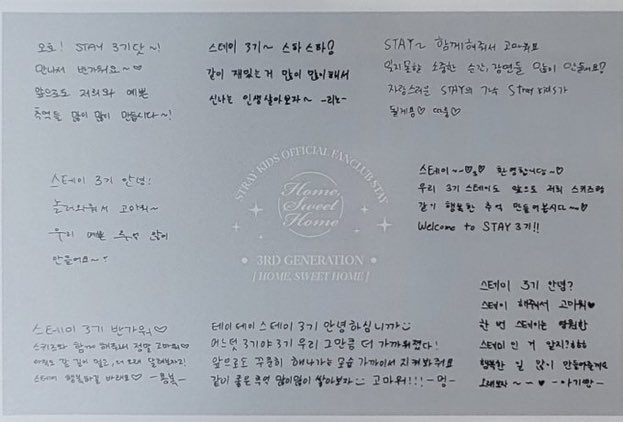 오호! STAY 3기닷~!
만나서 반가워요~♡
앞으로도 저희와 예쁜
추억들 많이 많이 만듭시다~!
스테이 3기~ 스하스하!
같이 재밌는거 많이 많이 해서
신나는 인생살아보자~ -리노-
STAY~ 함께해줘서 고마워요
잊지못할 소중한 순간, 장면들 많이 만들어요!
자랑스러운 STAY의 가수 Stray kids가
될게용♡ 따룽♡
스테이 3기 안녕!
놀러와줘서 고마워~
우리 예쁜 추억 많이
만들어요~
STRAY KIDS OFFICIAL FANCLUB STAY
Home,
Sweet
Home
• 3RD GENERATION •
[ HOME, SWEET HOME ]
스테이~~♡ 환영합니당~♡
우리 3기 스테이도 앞으로 저희 스키즈랑
같이 행복한 추억 만들어봅시다~♡
Welcome to STAY 3기!!
스테이 3기 반가워♡
스키즈와 함께 해줘서 정말 고마워♡
아직도 갈 길이 멀고, 더 오래 달려보자!
스테이 행복하길 바래요♡ -용복-
테이테이스테이 3기 안녕하십니까
어느덧 3기야 3기 우리 그만큼 더 가까워졌다!
앞으로도 꾸준히 해나가는 모습 가까이서 지켜봐줘요
같이 좋은추억 많이많이 쌓아보자 고마워!!! -멍-
스테이 3기 안녕?
스테이 해줘서 고마워♥
한 번 스테이는 영원한
스테이 인 거 알지?ㅎㅎㅎ
행복한 일 많이 만들어줄게요
오래보자~~♥ -아기빵-